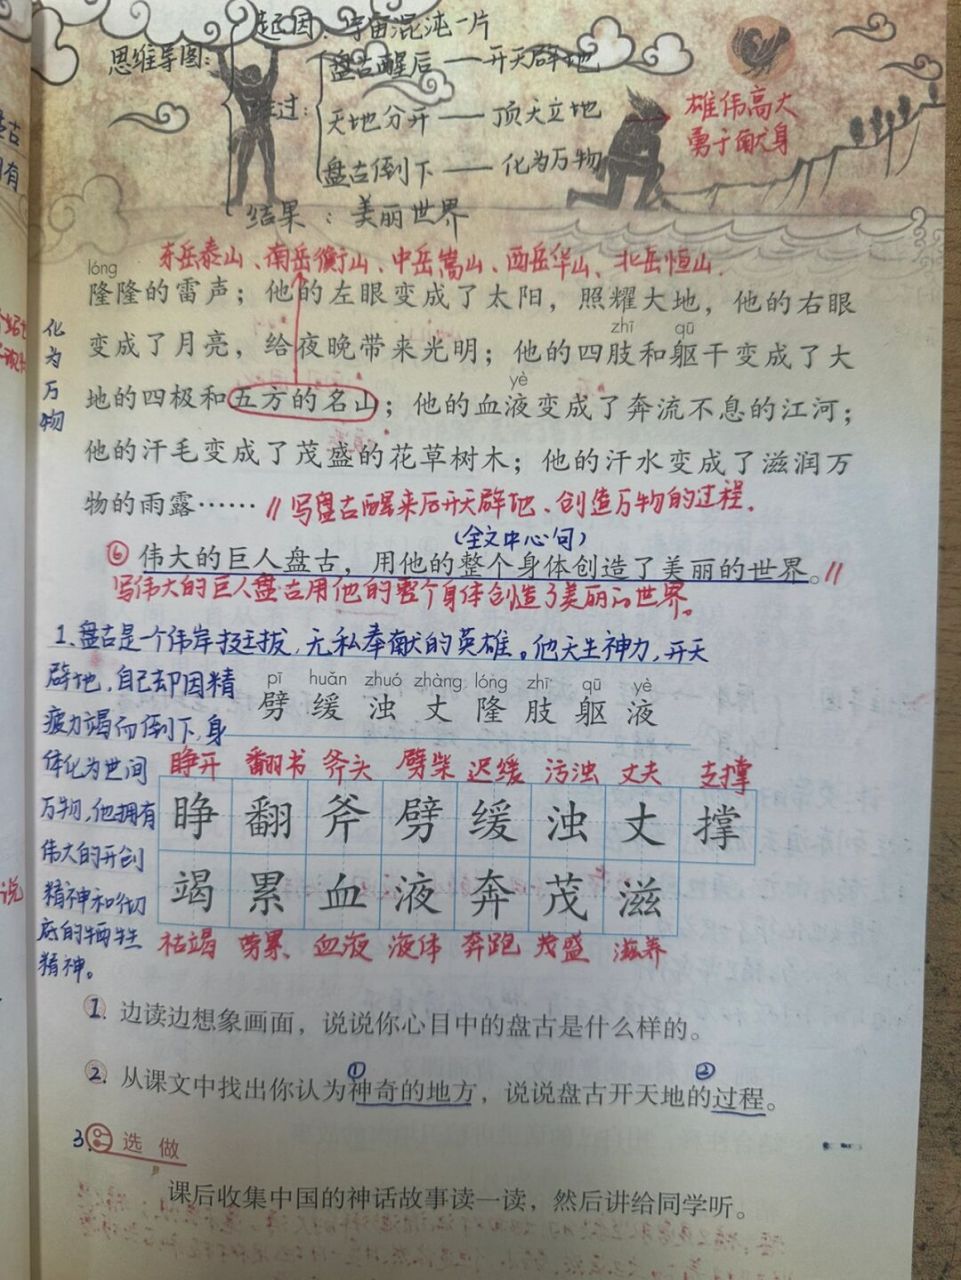 思维导图：
起因：宇宙混沌一片
盘古醒后——开天辟地
经过：
天地分开——顶天立地
盘古倒下——化为万物
结果：美丽世界
雄伟高大
勇于献身
东岳泰山、南岳衡山、中岳嵩山、西岳华山、北岳恒山.
lóng
隆隆的雷声；他的左眼变成了太阳，照耀大地，他的右眼
zhī qū
变成了月亮，给夜晚带来光明；他的四肢和躯干变成了大
yè
地的四极和五方的名山；他的血液变成了奔流不息的江河；
他的汗毛变成了茂盛的花草树木；他的汗水变成了滋润万
物的雨露……//写盘古醒来后开天辟地、创造万物的过程.
化为万物
(全文中心句)
⑥伟大的巨人盘古，用他的整个身体创造了美丽的世界。//
写伟大的巨人盘古用他的整个身体创造了美丽的世界。
1.盘古是个伟岸挺拔，无私奉献的英雄。他天生神力，开天
辟地，自己却因精
疲力竭而倒下，身
体化为世间
万物，他拥有
伟大的开创
精神和彻
底的牺牲
精神。
pī huǎn zhuó zhàng lóng zhī qū yè
劈 缓 浊 丈 隆 肢 躯 液
睁开 翻书 斧头 劈柴 迟缓 污浊 丈夫 支撑
睁 翻 斧 劈 缓 浊 丈 撑
竭 累 血 液 奔 茂 滋
枯竭 劳累 血液 液体 奔跑 茂盛 滋养
1. 边读边想象画面，说说你心目中的盘古是什么样的。
① ②
2. 从课文中找出你认为神奇的地方，说说盘古开天地的过程。
3. 选做
课后收集中国的神话故事读一读，然后讲给同学听。